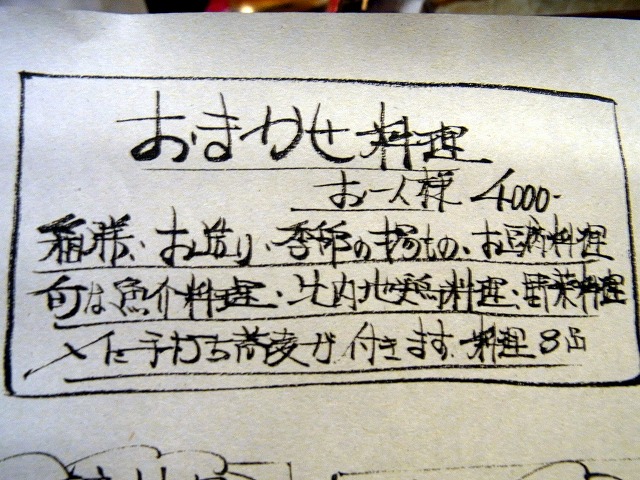 おまかせ料理
お一人様 4000-
お造り・季節の揚もの・お豆腐料理
旬な魚介料理・比内地鶏料理・野菜料理
〆に手打ち蕎麦が付きます 料理8品